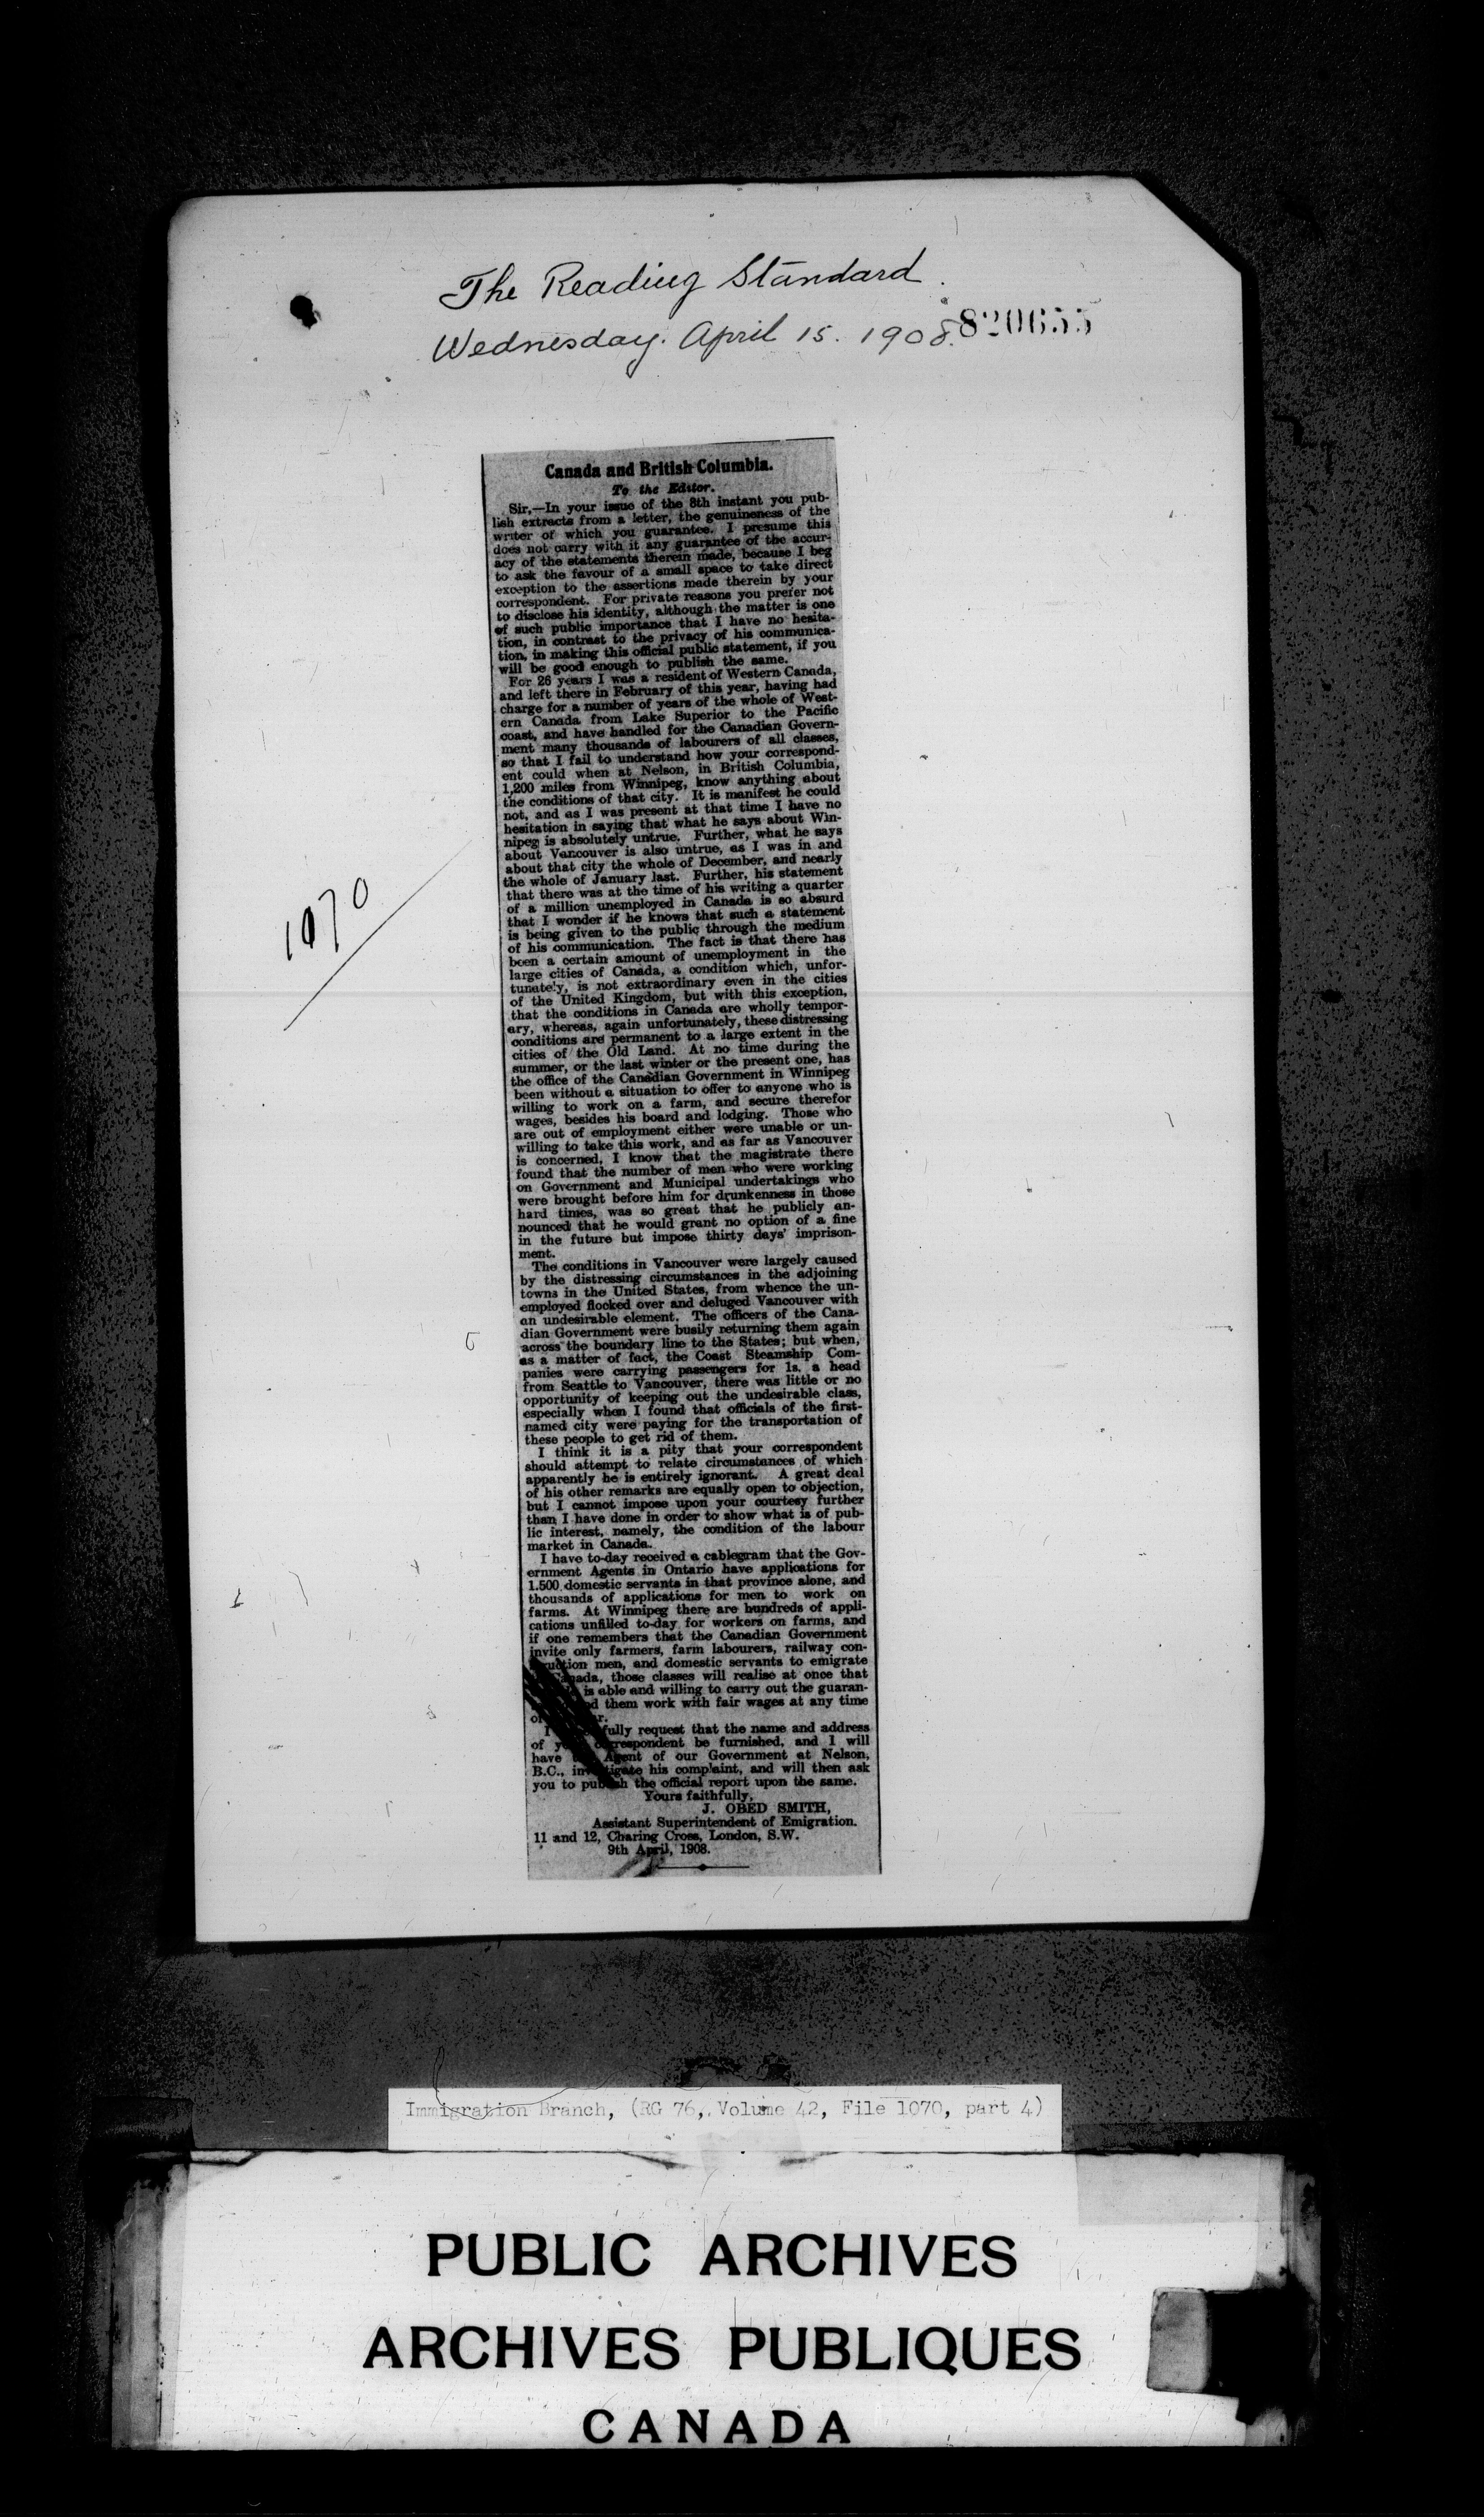 The Reading Standard.
Wednesday. April 15. 1908.
820655
1070
Canada and British Columbia.
To the Editor.
Sir,—In your issue of the 8th instant you pub-
lish extracts from a letter, the genuineness of the
writer of which you guarantee. I presume this
does not carry with it any guarantee of the accur-
acy of the statements therein made, because I beg
to ask the favour of a small space to take direct
exception to the assertions made therein by your
correspondent. For private reasons you prefer not
to disclose his identity, although the matter is one
of such public importance that I have no hesita-
tion, in contrast to the privacy of his communica-
tion, in making this official public statement, if you
will be good enough to publish the same.
For 26 years I was a resident of Western Canada,
and left there in February of this year, having had
charge for a number of years of the whole of West-
ern Canada from Lake Superior to the Pacific
coast, and have handled for the Canadian Govern-
ment many thousands of labourers of all classes,
so that I fail to understand how your correspond-
ent could when at Nelson, in British Columbia,
1,200 miles from Winnipeg, know anything about
the conditions of that city. It is manifest he could
not, and as I was present at that time I have no
hesitation in saying that what he says about Win-
nipeg is absolutely untrue. Further, what he says
about Vancouver is also untrue, as I was in and
about that city the whole of December, and nearly
the whole of January last. Further, his statement
that there was at the time of his writing a quarter
of a million unemployed in Canada is so absurd
that I wonder if he knows that such a statement
is being given to the public through the medium
of his communication. The fact is that there has
been a certain amount of unemployment in the
large cities of Canada, a condition which, unfor-
tunately, is not extraordinary even in the cities
of the United Kingdom, but with this exception,
that the conditions in Canada are wholly tempor-
ary, whereas, again unfortunately, these distressing
conditions are permanent to a large extent in the
cities of the Old Land. At no time during the
summer, or the last winter or the present one, has
the office of the Canadian Government in Winnipeg
been without a situation to offer to anyone who is
willing to work on a farm, and secure therefor
wages, besides his board and lodging. Those who
are out of employment either were unable or un-
willing to take this work, and as far as Vancouver
is concerned, I know that the magistrate there
found that the number of men who were working
on Government and Municipal undertakings who
were brought before him for drunkenness in those
hard times, was so great that he publicly an-
nounced that he would grant no option of a fine
in the future but impose thirty days' imprison-
ment.
The conditions in Vancouver were largely caused
by the distressing circumstances in the adjoining
towns in the United States, from whence the un-
employed flocked over and deluged Vancouver with
an undesirable element. The officers of the Cana-
dian Government were busily returning them again
across the boundary line to the States; but when,
as a matter of fact, the Coast Steamship Com-
panies were carrying passengers for 1s. a head
from Seattle to Vancouver, there was little or no
opportunity of keeping out the undesirable class,
especially when I found that officials of the first-
named city were paying for the transportation of
these people to get rid of them.
I think it is a pity that your correspondent
should attempt to relate circumstances of which
apparently he is entirely ignorant. A great deal
of his other remarks are equally open to objection,
but I cannot impose upon your courtesy further
than I have done in order to show what is of pub-
lic interest, namely, the condition of the labour
market in Canada.
I have to-day received a cablegram that the Gov-
ernment Agents in Ontario have applications for
1.500 domestic servants in that province alone, and
thousands of applications for men to work on
farms. At Winnipeg there are hundreds of appli-
cations unfilled to-day for workers on farms, and
if one remembers that the Canadian Government
invite only farmers, farm labourers, railway con-
struction men, and domestic servants to emigrate
Canada, those classes will realise at once that
is able and willing to carry out the guaran-
them work with fair wages at any time
of
I request that the name and address
of your correspondent be furnished, and I will
have the Agent of our Government at Nelson,
B.C., investigate his complaint, and will then ask
you to publish the official report upon the same.
Yours faithfully,
J. OBED SMITH,
Assistant Superintendent of Emigration.
11 and 12, Charing Cross, London, S.W.
9th April, 1908.
Immigration Branch, (RG 76, Volume 42, File 1070, part 4)
PUBLIC ARCHIVES
ARCHIVES PUBLIQUES
CANADA